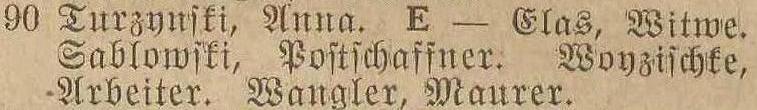 90 Turzynski, Anna. E — Elas, Witwe.
Sablowski, Postschaffner. Woyzischke,
Arbeiter. Wangler, Maurer.